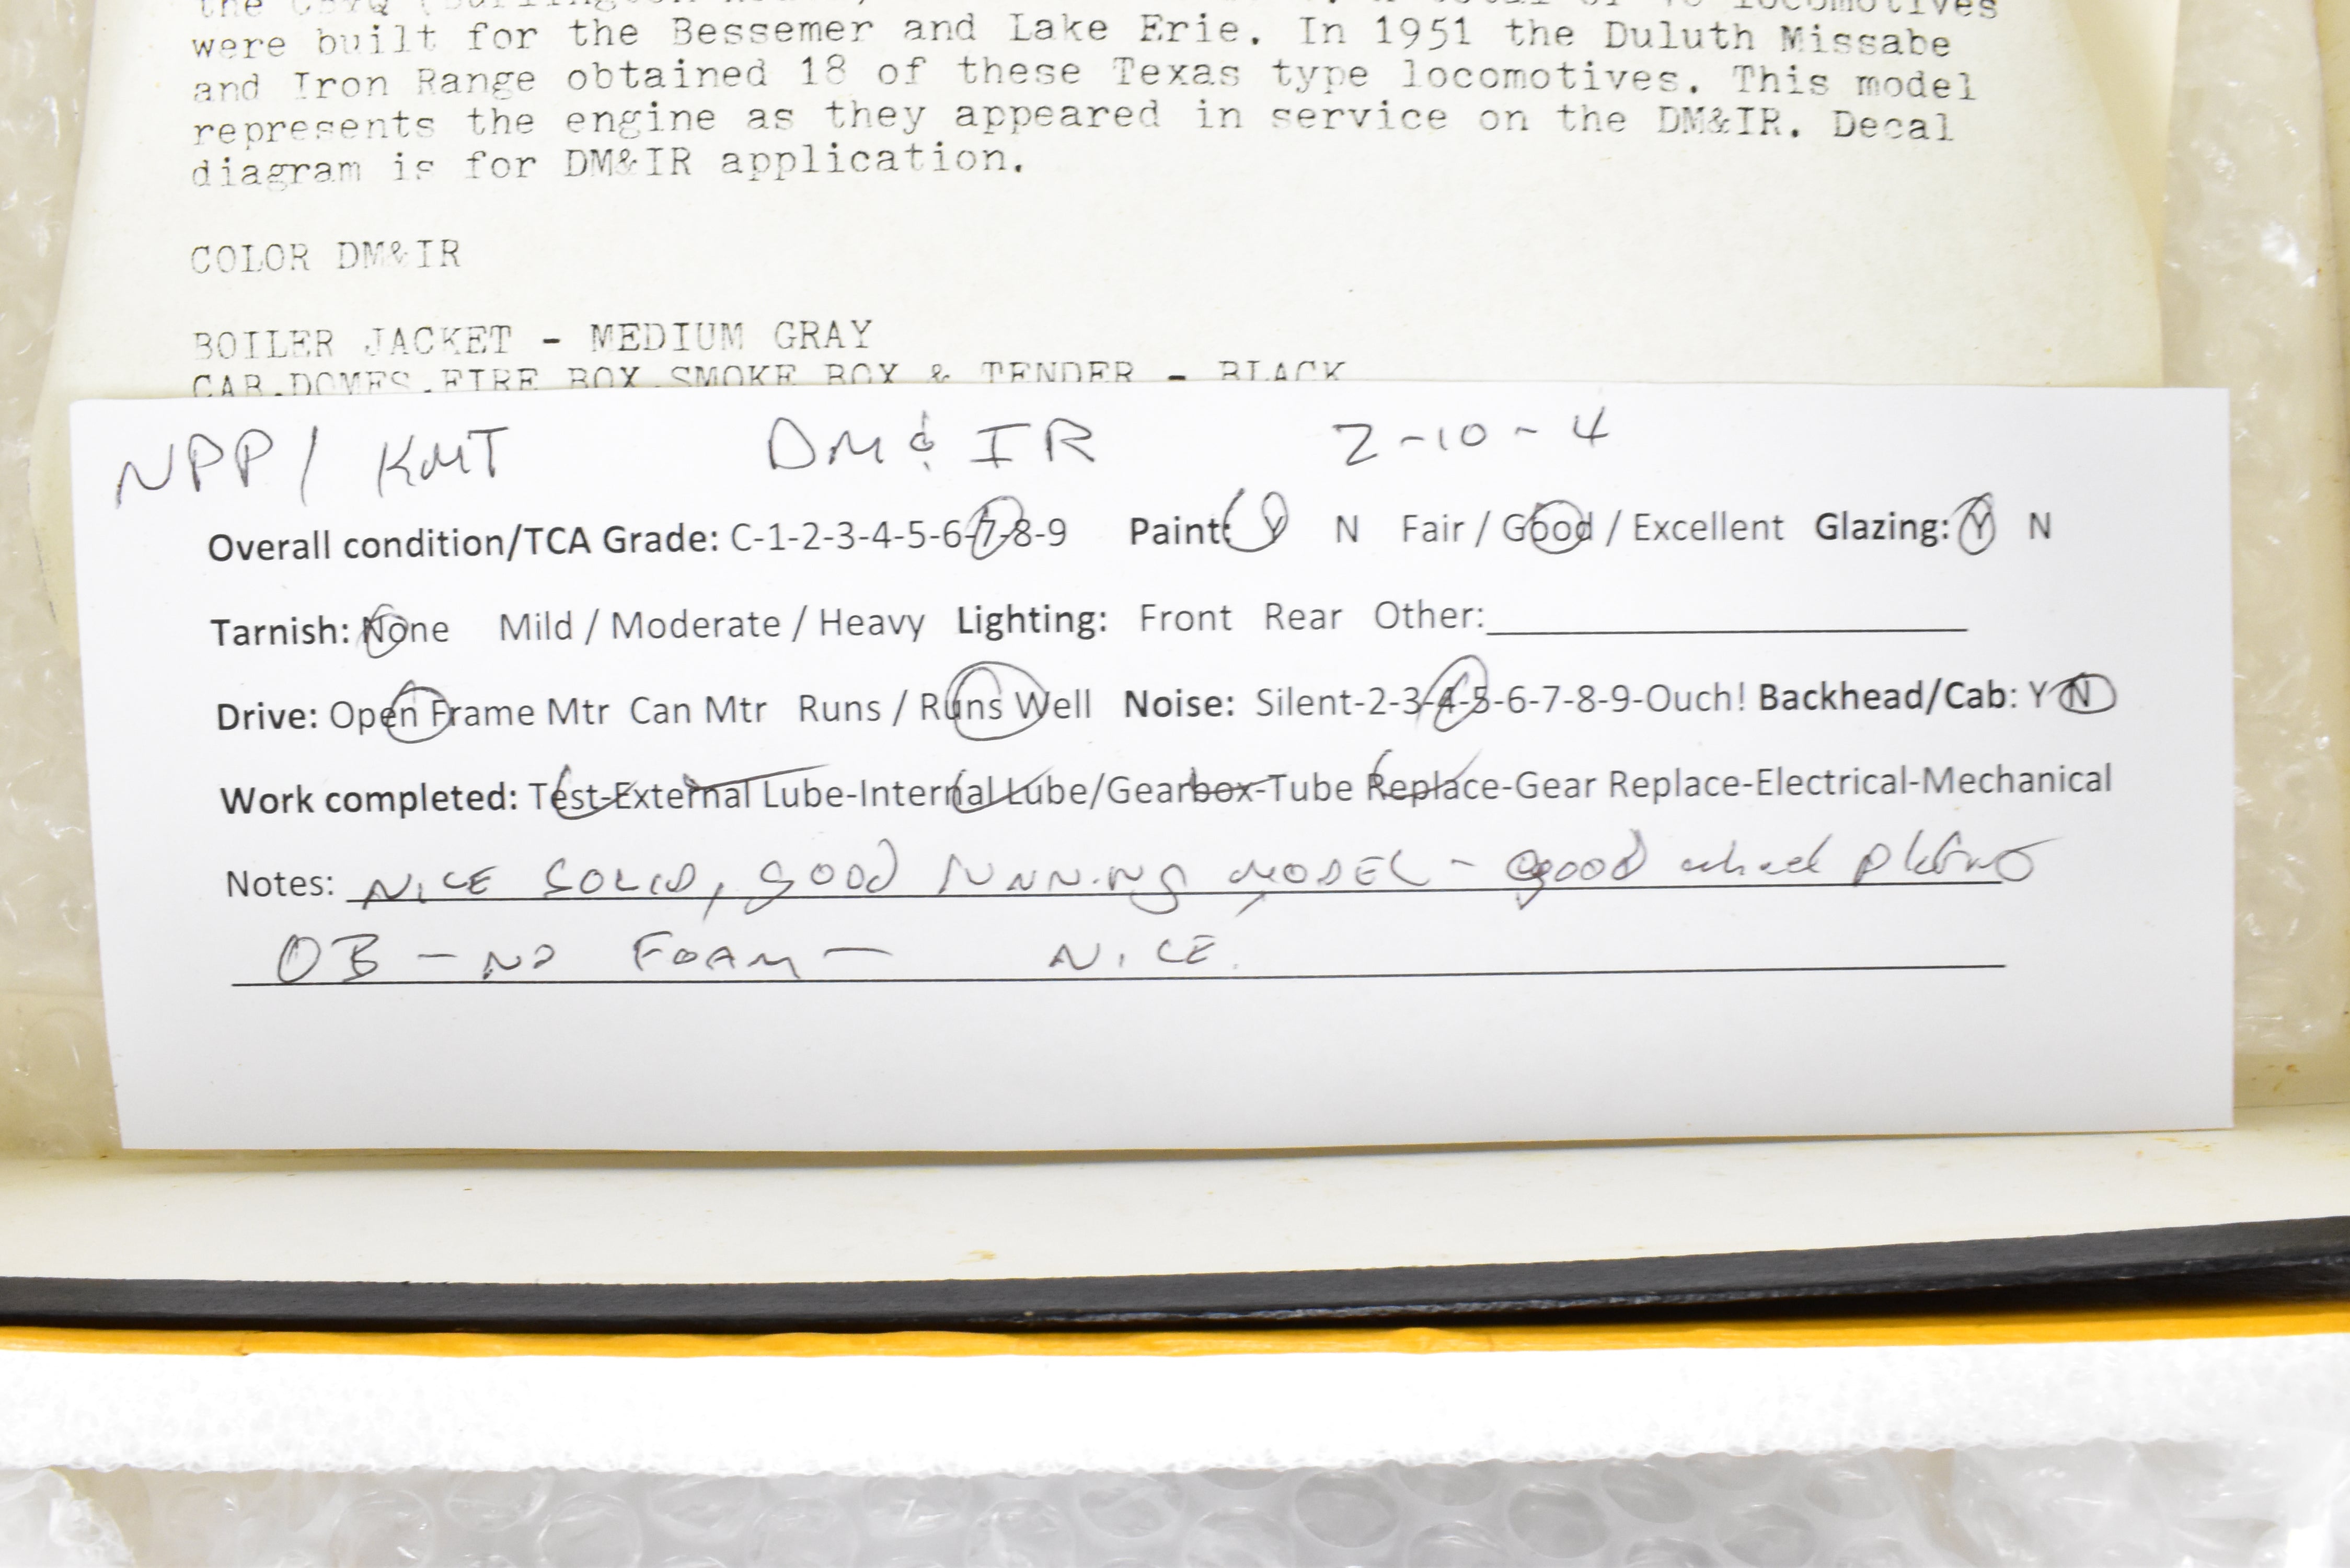 were built for the Bessemer and Lake Erie. In 1951 the Duluth Missabe
and Iron Range obtained 18 of these Texas type locomotives. This model
represents the engine as they appeared in service on the DM&IR. Decal
diagram is for DM&IR application.
COLOR DM&IR
BOILER JACKET - MEDIUM GRAY
CAB,DOMES,FIRE BOX,SMOKE BOX & TENDER - BLACK
NPP/ KMT DM&IR 2-10-4
Overall condition/TCA Grade: C-1-2-3-4-5-6-7-8-9 Paint: Y N Fair / Good / Excellent Glazing: Y N
Tarnish: None Mild / Moderate / Heavy Lighting: Front Rear Other:
Drive: Open Frame Mtr Can Mtr Runs / Runs Well Noise: Silent-2-3-4-5-6-7-8-9-Ouch! Backhead/Cab: Y N
Work completed: Test-External Lube-Internal Lube/Gearbox-Tube Replace-Gear Replace-Electrical-Mechanical
Notes: NICE SOLID, GOOD RUNNING MODEL - good wheel plating
OB - NO FOAM - NICE.